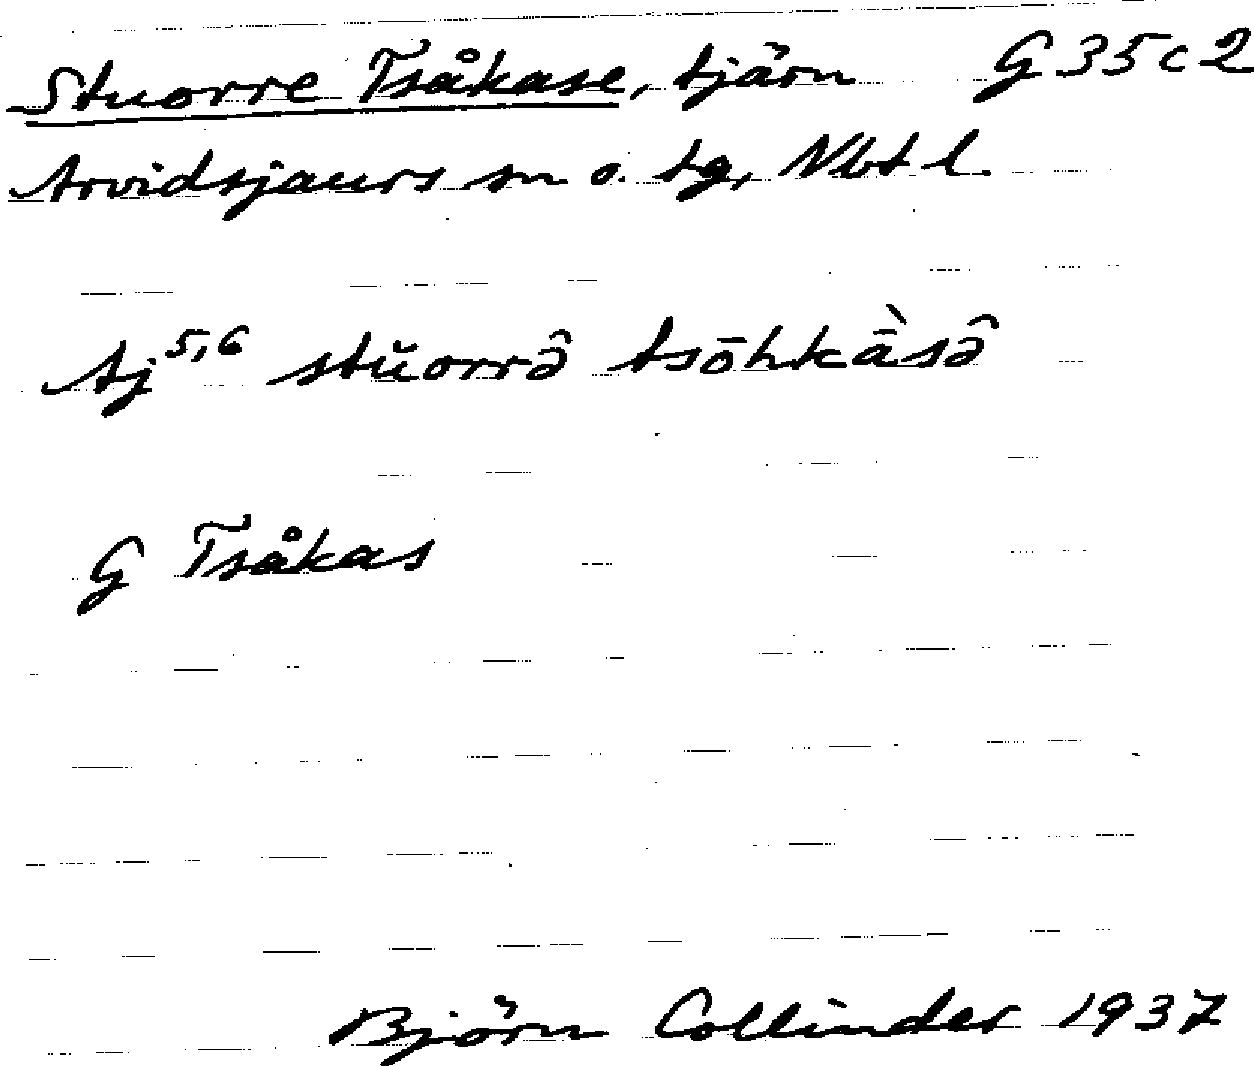 Stuorre Tsåkase, tjärn G 35 c 2
Arvidsjaurs sn o. tg, Nbt l.
Aj⁵,⁶ stŭorrə̂ tsōhkā̀sə̂
G Tsåkas
Björn Collinder 1937